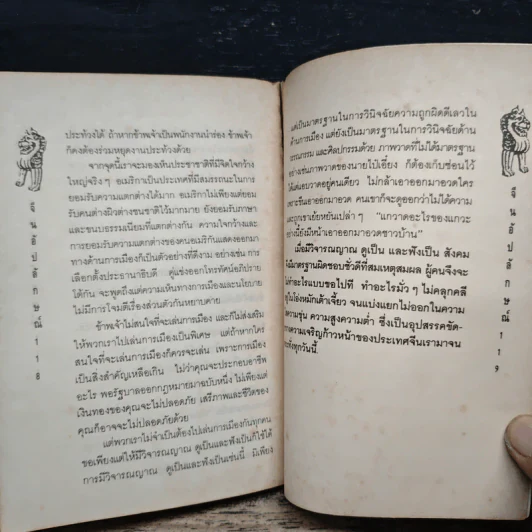 ประท้วงได้ ถ้าหากข้าพเจ้าเป็นพนักงานนำร่อง ข้าพเจ้า
ก็คงต้องร่วมหยุดงานประท้วงด้วย
จากจุดนี้เราจะมองเห็นประชาชาติที่มีจิตใจกว้าง
ใหญ่จริงๆ อเมริกาเป็นประเทศที่มีสมรรถนะในการ
ยอมรับความแตกต่างได้มาก อเมริกาไม่เพียงแต่ยอม
รับคนต่างผิวต่างชนชาติไว้มากมาย ยังยอมรับภาษา
และขนบธรรมเนียมที่แตกต่างกัน ความใจกว้างและ
การยอมรับความแตกต่างของคนอเมริกันแสดงออกมา
ทางด้านการเมืองก็เป็นตัวอย่างที่ดีงาม ยกตัวอย่างเช่น การ
เลือกตั้งประธานาธิบดี คู่แข่งออกโทรทัศน์อภิปราย
โต้กัน จะพูดถึงแต่ความเห็นทางการเมืองและนโยบาย
ไม่มีการโจมตีเรื่องส่วนตัวกันหยาบคาย
ข้าพเจ้าไม่สนใจที่จะเล่นการเมือง และก็ไม่ส่งเสริม
ให้พวกเราไปเล่นการเมืองเป็นพิเศษ แต่ถ้าหากใคร
สนใจที่จะเล่นการเมืองก็ควรจะเล่น เพราะการเมือง
เป็นสิ่งสำคัญเหลือเกิน ไม่ว่าคุณจะประกอบอาชีพ
อะไร พอรัฐบาลออกกฎหมายมาฉบับหนึ่ง ไม่เพียงแต่
เงินทองของคุณจะไม่ปลอดภัย เสรีภาพและชีวิตของ
คุณก็อาจจะไม่ปลอดภัยด้วย
แต่พวกเราไม่จำเป็นต้องไปเล่นการเมืองกันทุกคน
ขอเพียงแต่ให้มีวิจารณญาณ ดูเป็นและฟังเป็นก็ใช้ได้
การมีวิจารณญาณ ดูเป็นและฟังเป็นเช่นนี้ มิเพียง
จีนอัปลักษณ์ 118
แต่เป็นมาตรฐานในการวินิจฉัยความถูกผิดดีเลวใน
ด้านการเมือง แต่ยังเป็นมาตรฐานในการวินิจฉัยด้าน
วรรณกรรม และศิลปกรรมด้วย ภาพวาดที่ไม่ได้มาตรฐาน
อย่างเช่นภาพวาดของนายไป๋เอี๋ยง ก็ต้องเก็บซ่อนไว้
ได้แต่แอบวาดอยู่คนเดียว ไม่กล้าเอาออกมาอวดใคร
เพราะขืนเอาออกมาอวด คนเขาก็จะดูออกว่าไม่ได้ความ
และถูกเขาเย้ยหยันเปล่าๆ "แกวาดอะไรของแกวะ
อย่างนี้ยังมีหน้าเอาออกมาอวดชาวบ้าน"
เมื่อมีวิจารณญาณ ดูเป็น และฟังเป็น สังคม
ก็มีมาตรฐานผิดชอบชั่วดีที่สมเหตุสมผล ผู้คนจึงจะ
ไม่ทำอะไรแบบขอไปที ทำอะไรมั่วๆ ไม่คลุกคลี
อยู่ในโอ่งหมักเต้าเจี้ยว จนแบ่งแยกไม่ออกในความ
ความขุ่น ความสูงความต่ำ ซึ่งเป็นอุปสรรคขัด-
ความเจริญก้าวหน้าของประเทศจีนเรามาจน
ทุกวันนี้.
จีนอัปลักษณ์ 119